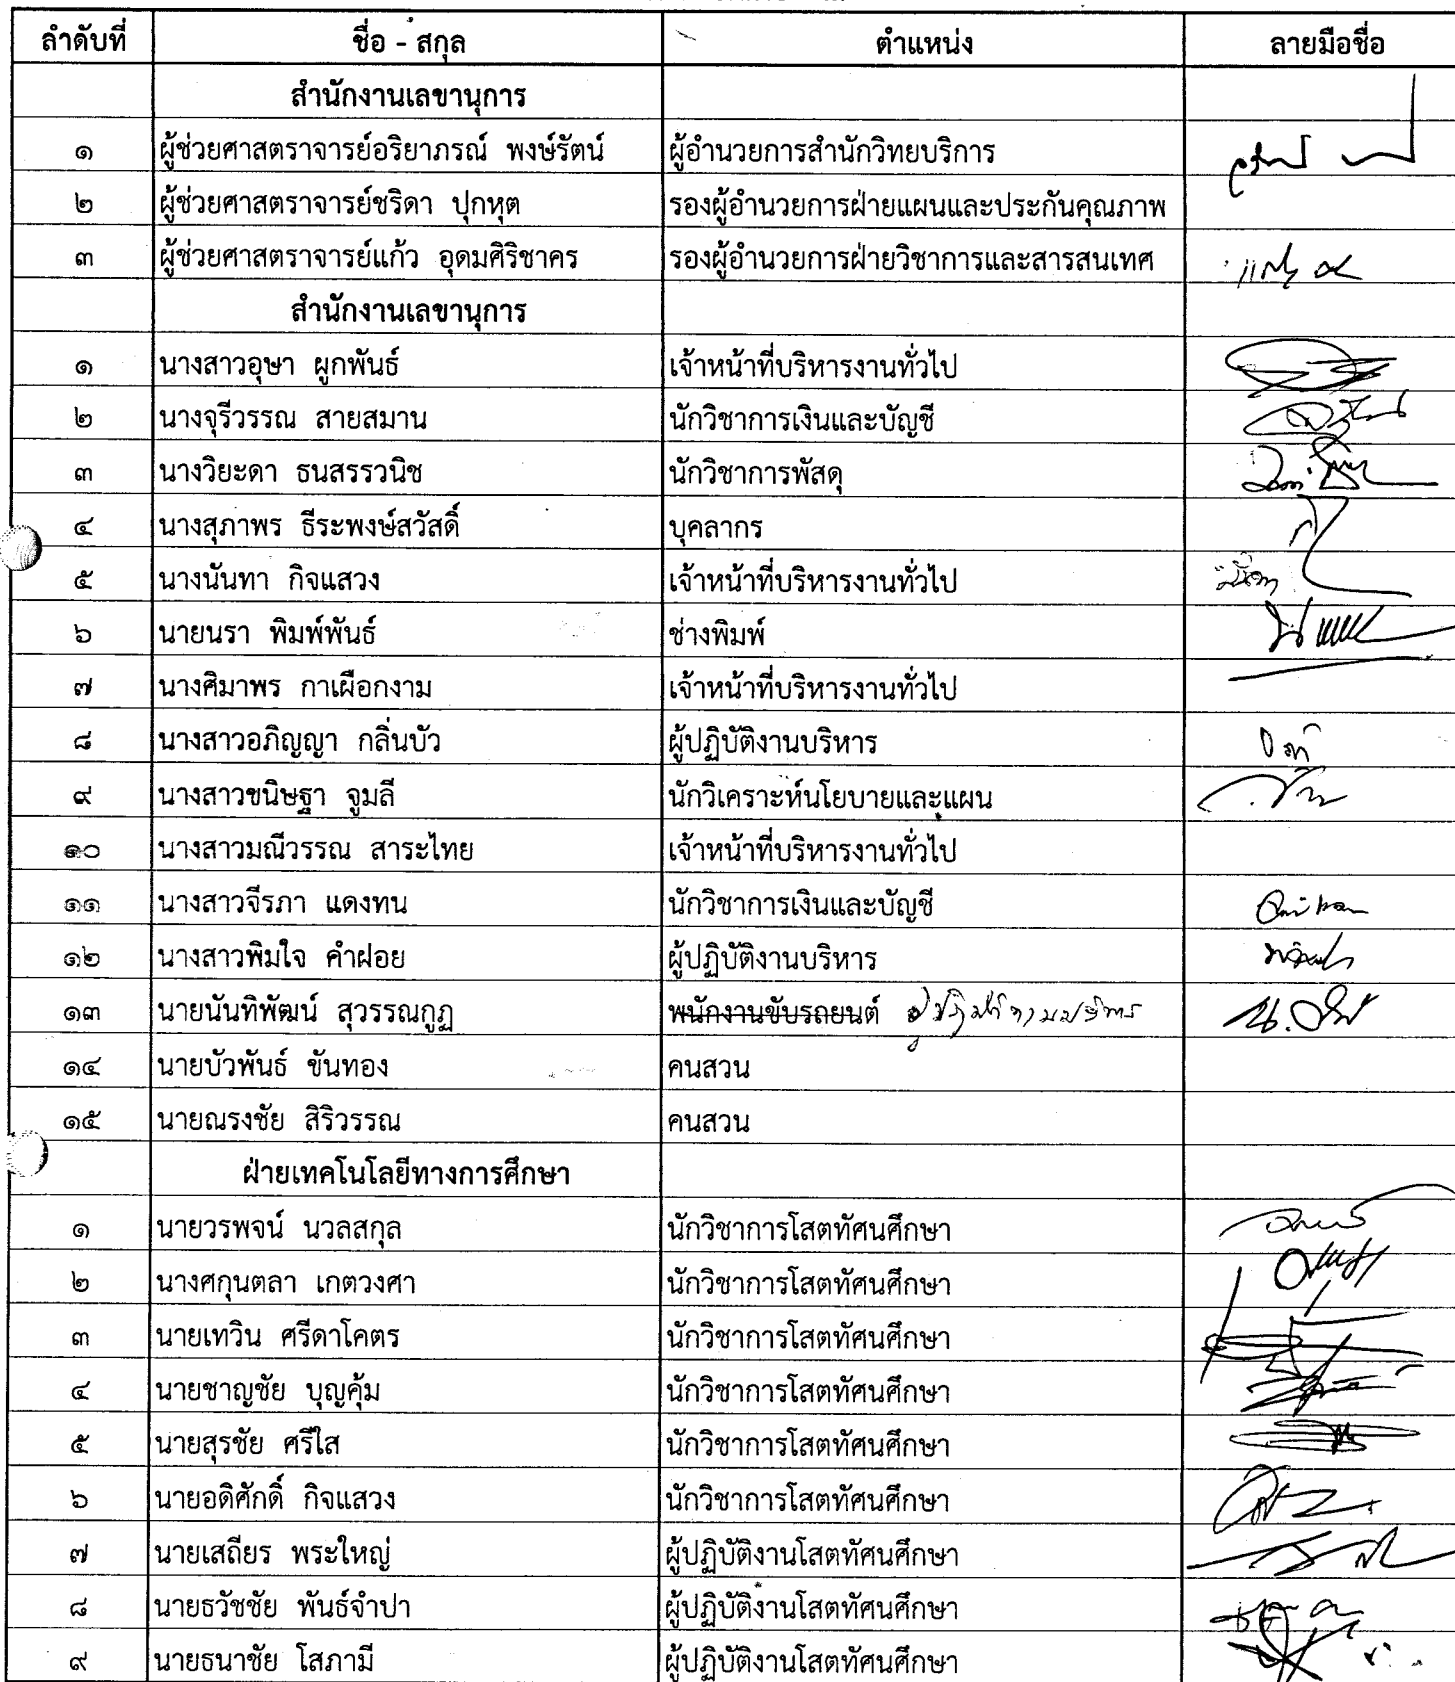 ลำดับที่ ชื่อ - สกุล ตำแหน่ง ลายมือชื่อ
สำนักงานเลขานุการ
๑ ผู้ช่วยศาสตราจารย์อริยาภรณ์ พงษ์รัตน์ ผู้อำนวยการสำนักวิทยบริการ
๒ ผู้ช่วยศาสตราจารย์ชริดา ปุกหุต รองผู้อำนวยการฝ่ายแผนและประกันคุณภาพ
๓ ผู้ช่วยศาสตราจารย์แก้ว อุดมศิริชาคร รองผู้อำนวยการฝ่ายวิชาการและสารสนเทศ
สำนักงานเลขานุการ
๑ นางสาวอุษา ผูกพันธ์ เจ้าหน้าที่บริหารงานทั่วไป
๒ นางจุรีวรรณ สายสมาน นักวิชาการเงินและบัญชี
๓ นางวิยะดา ธนสรรวนิช นักวิชาการพัสดุ
๔ นางสุภาพร ธีระพงษ์สวัสดิ์ บุคลากร
๕ นางนันทา กิจแสวง เจ้าหน้าที่บริหารงานทั่วไป
๖ นายนรา พิมพ์พันธ์ ช่างพิมพ์
๗ นางศิมาพร กาเผือกงาม เจ้าหน้าที่บริหารงานทั่วไป
๘ นางสาวอภิญญา กลิ่นบัว ผู้ปฏิบัติงานบริหาร
๙ นางสาวขนิษฐา จูมลี นักวิเคราะห์นโยบายและแผน
๑๐ นางสาวมณีวรรณ สาระไทย เจ้าหน้าที่บริหารงานทั่วไป
๑๑ นางสาวจีรภา แดงทน นักวิชาการเงินและบัญชี
๑๒ นางสาวพิมใจ คำฝอย ผู้ปฏิบัติงานบริหาร
๑๓ นายนันทิพัฒน์ สุวรรณกูฏ พนักงานขับรถยนต์ ผู้ปฏิบัติงานบริหาร
๑๔ นายบัวพันธ์ ขันทอง คนสวน
๑๕ นายณรงชัย สิริวรรณ คนสวน
ฝ่ายเทคโนโลยีทางการศึกษา
๑ นายวรพจน์ นวลสกุล นักวิชาการโสตทัศนศึกษา
๒ นางศกุนตลา เกตวงศา นักวิชาการโสตทัศนศึกษา
๓ นายเทวิน ศรีดาโคตร นักวิชาการโสตทัศนศึกษา
๔ นายชาญชัย บุญคุ้ม นักวิชาการโสตทัศนศึกษา
๕ นายสุรชัย ศรีใส นักวิชาการโสตทัศนศึกษา
๖ นายอดิศักดิ์ กิจแสวง นักวิชาการโสตทัศนศึกษา
๗ นายเสถียร พระใหญ่ ผู้ปฏิบัติงานโสตทัศนศึกษา
๘ นายธวัชชัย พันธ์จำปา ผู้ปฏิบัติงานโสตทัศนศึกษา
๙ นายธนาชัย โสภามี ผู้ปฏิบัติงานโสตทัศนศึกษา